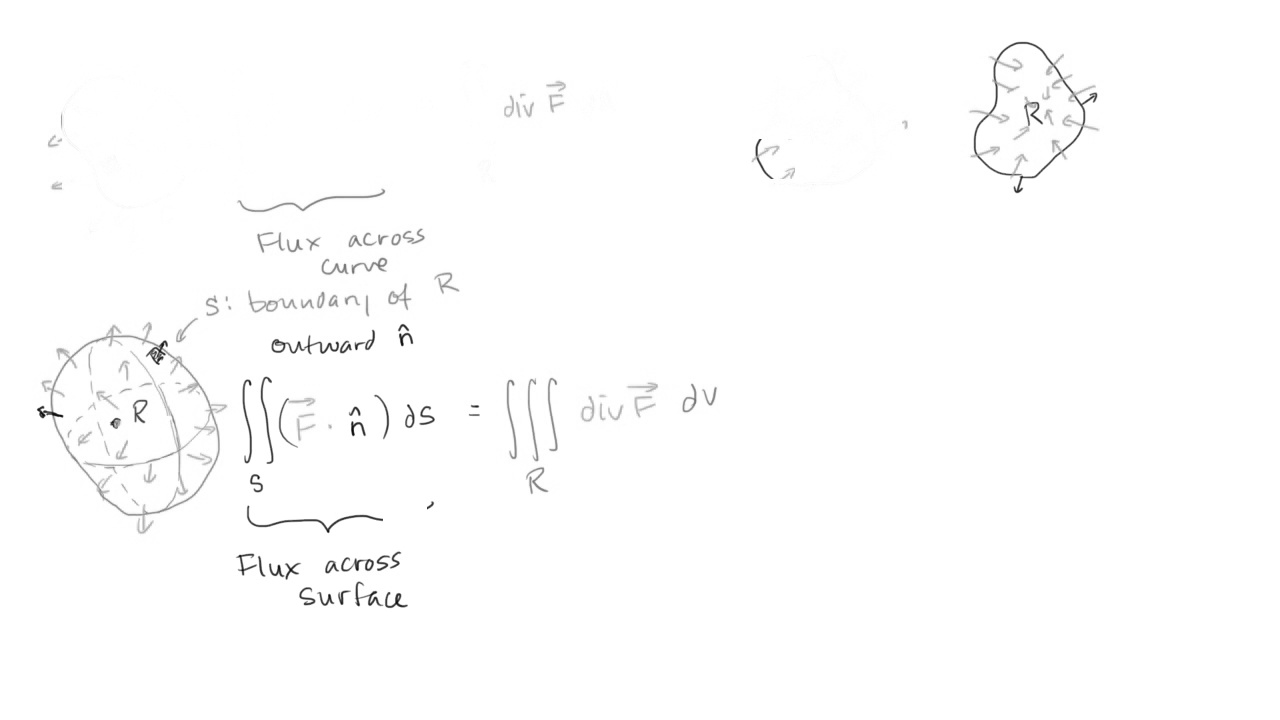 div F⃗
R
Flux across
curve
S: boundary of R
outward n̂
R
∬(F⃗ · n̂) ds = ∭ div F⃗ dv
S R
Flux across
surface